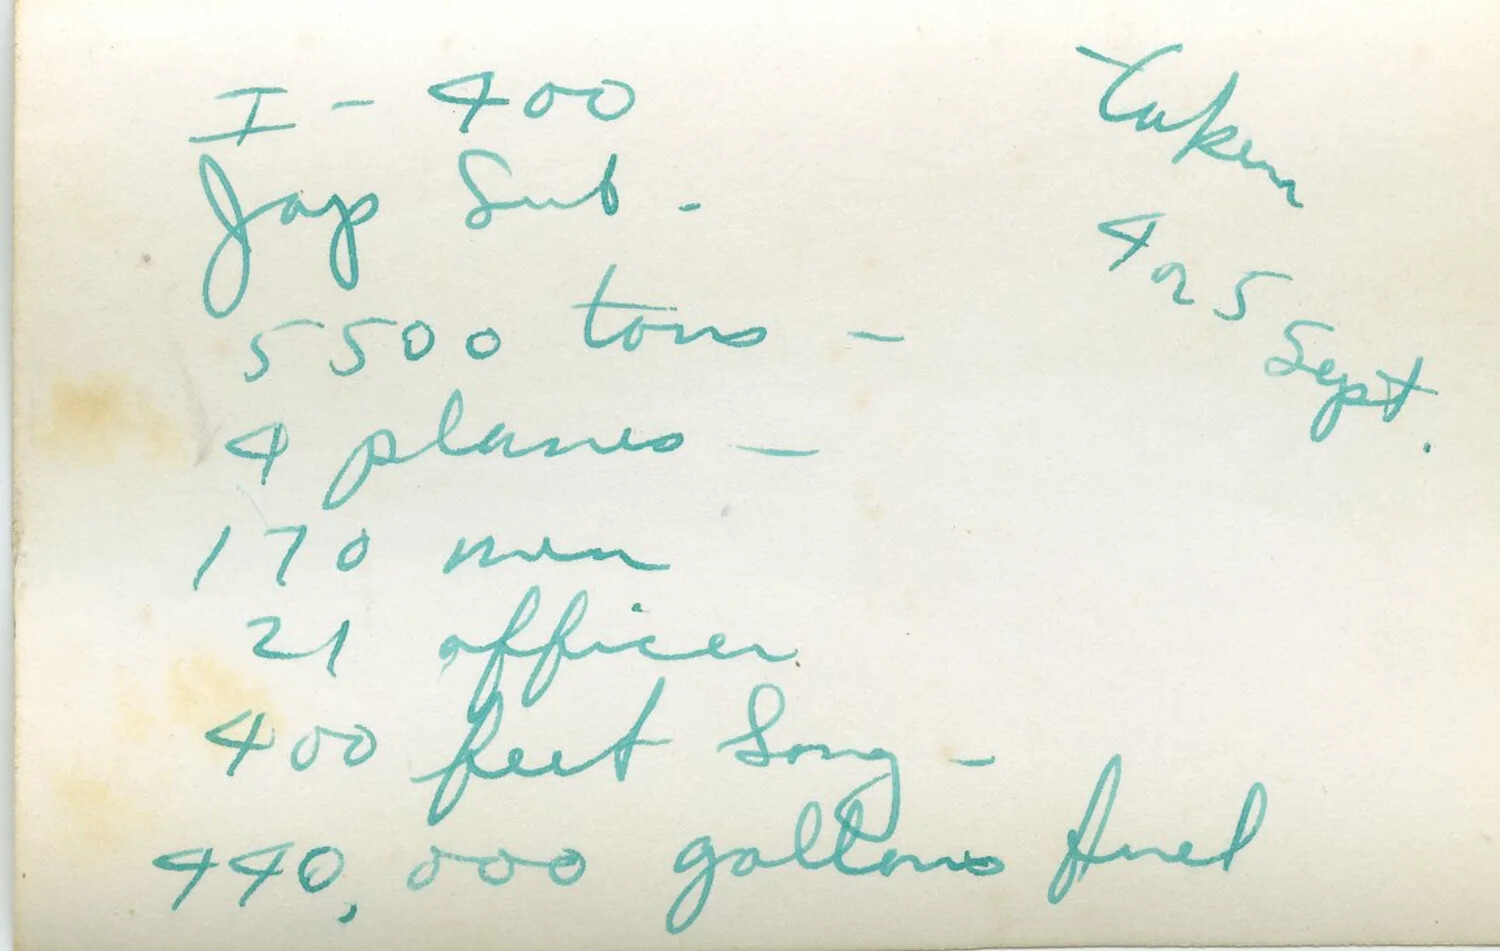 I - 400
Jap Sub -
5500 tons -
4 planes -
170 men
21 officer
400 feet long -
440,000 gallons fuel
Taken
4 or 5
Sept.